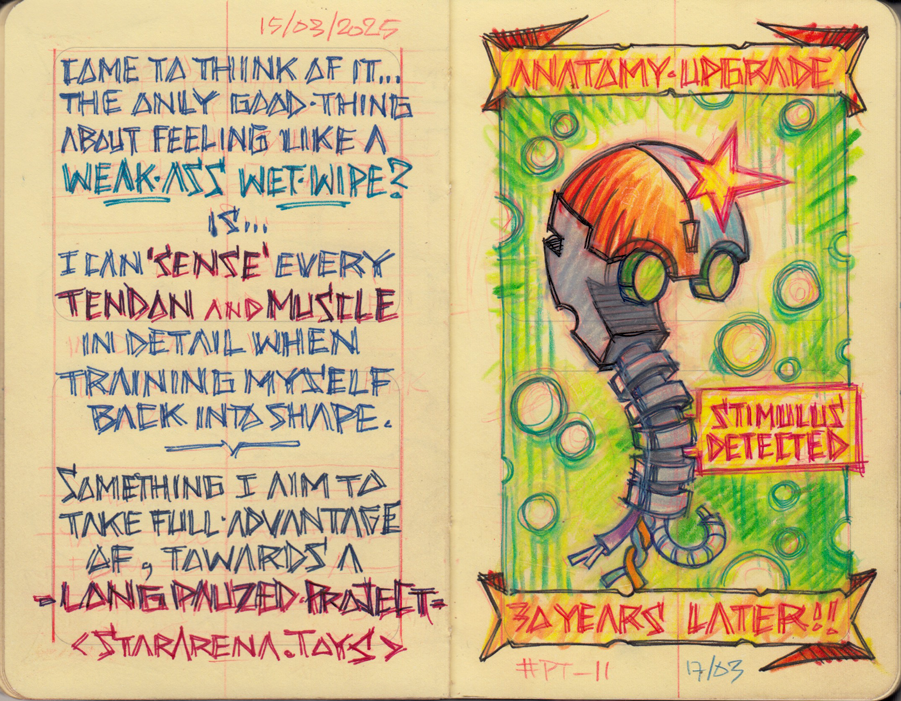 15/03/2025
COME TO THINK OF IT...
THE ONLY GOOD·THING
ABOUT FEELING LIKE A
WEAK·ASS WET·WIPE?
IS...
I CAN 'SENSE' EVERY
TENDON AND MUSCLE
IN DETAIL WHEN
TRAINING MYSELF
BACK INTO SHAPE.
SOMETHING I AIM TO
TAKE FULL·ADVANTAGE
OF, TOWARDS A
-LONG PAUZED·PROJECT-
<STARARENA.TOYS>
ANATOMY·UPGRADE
STIMULUS
DETECTED
30 YEARS LATER!!
#PT-11
17/03